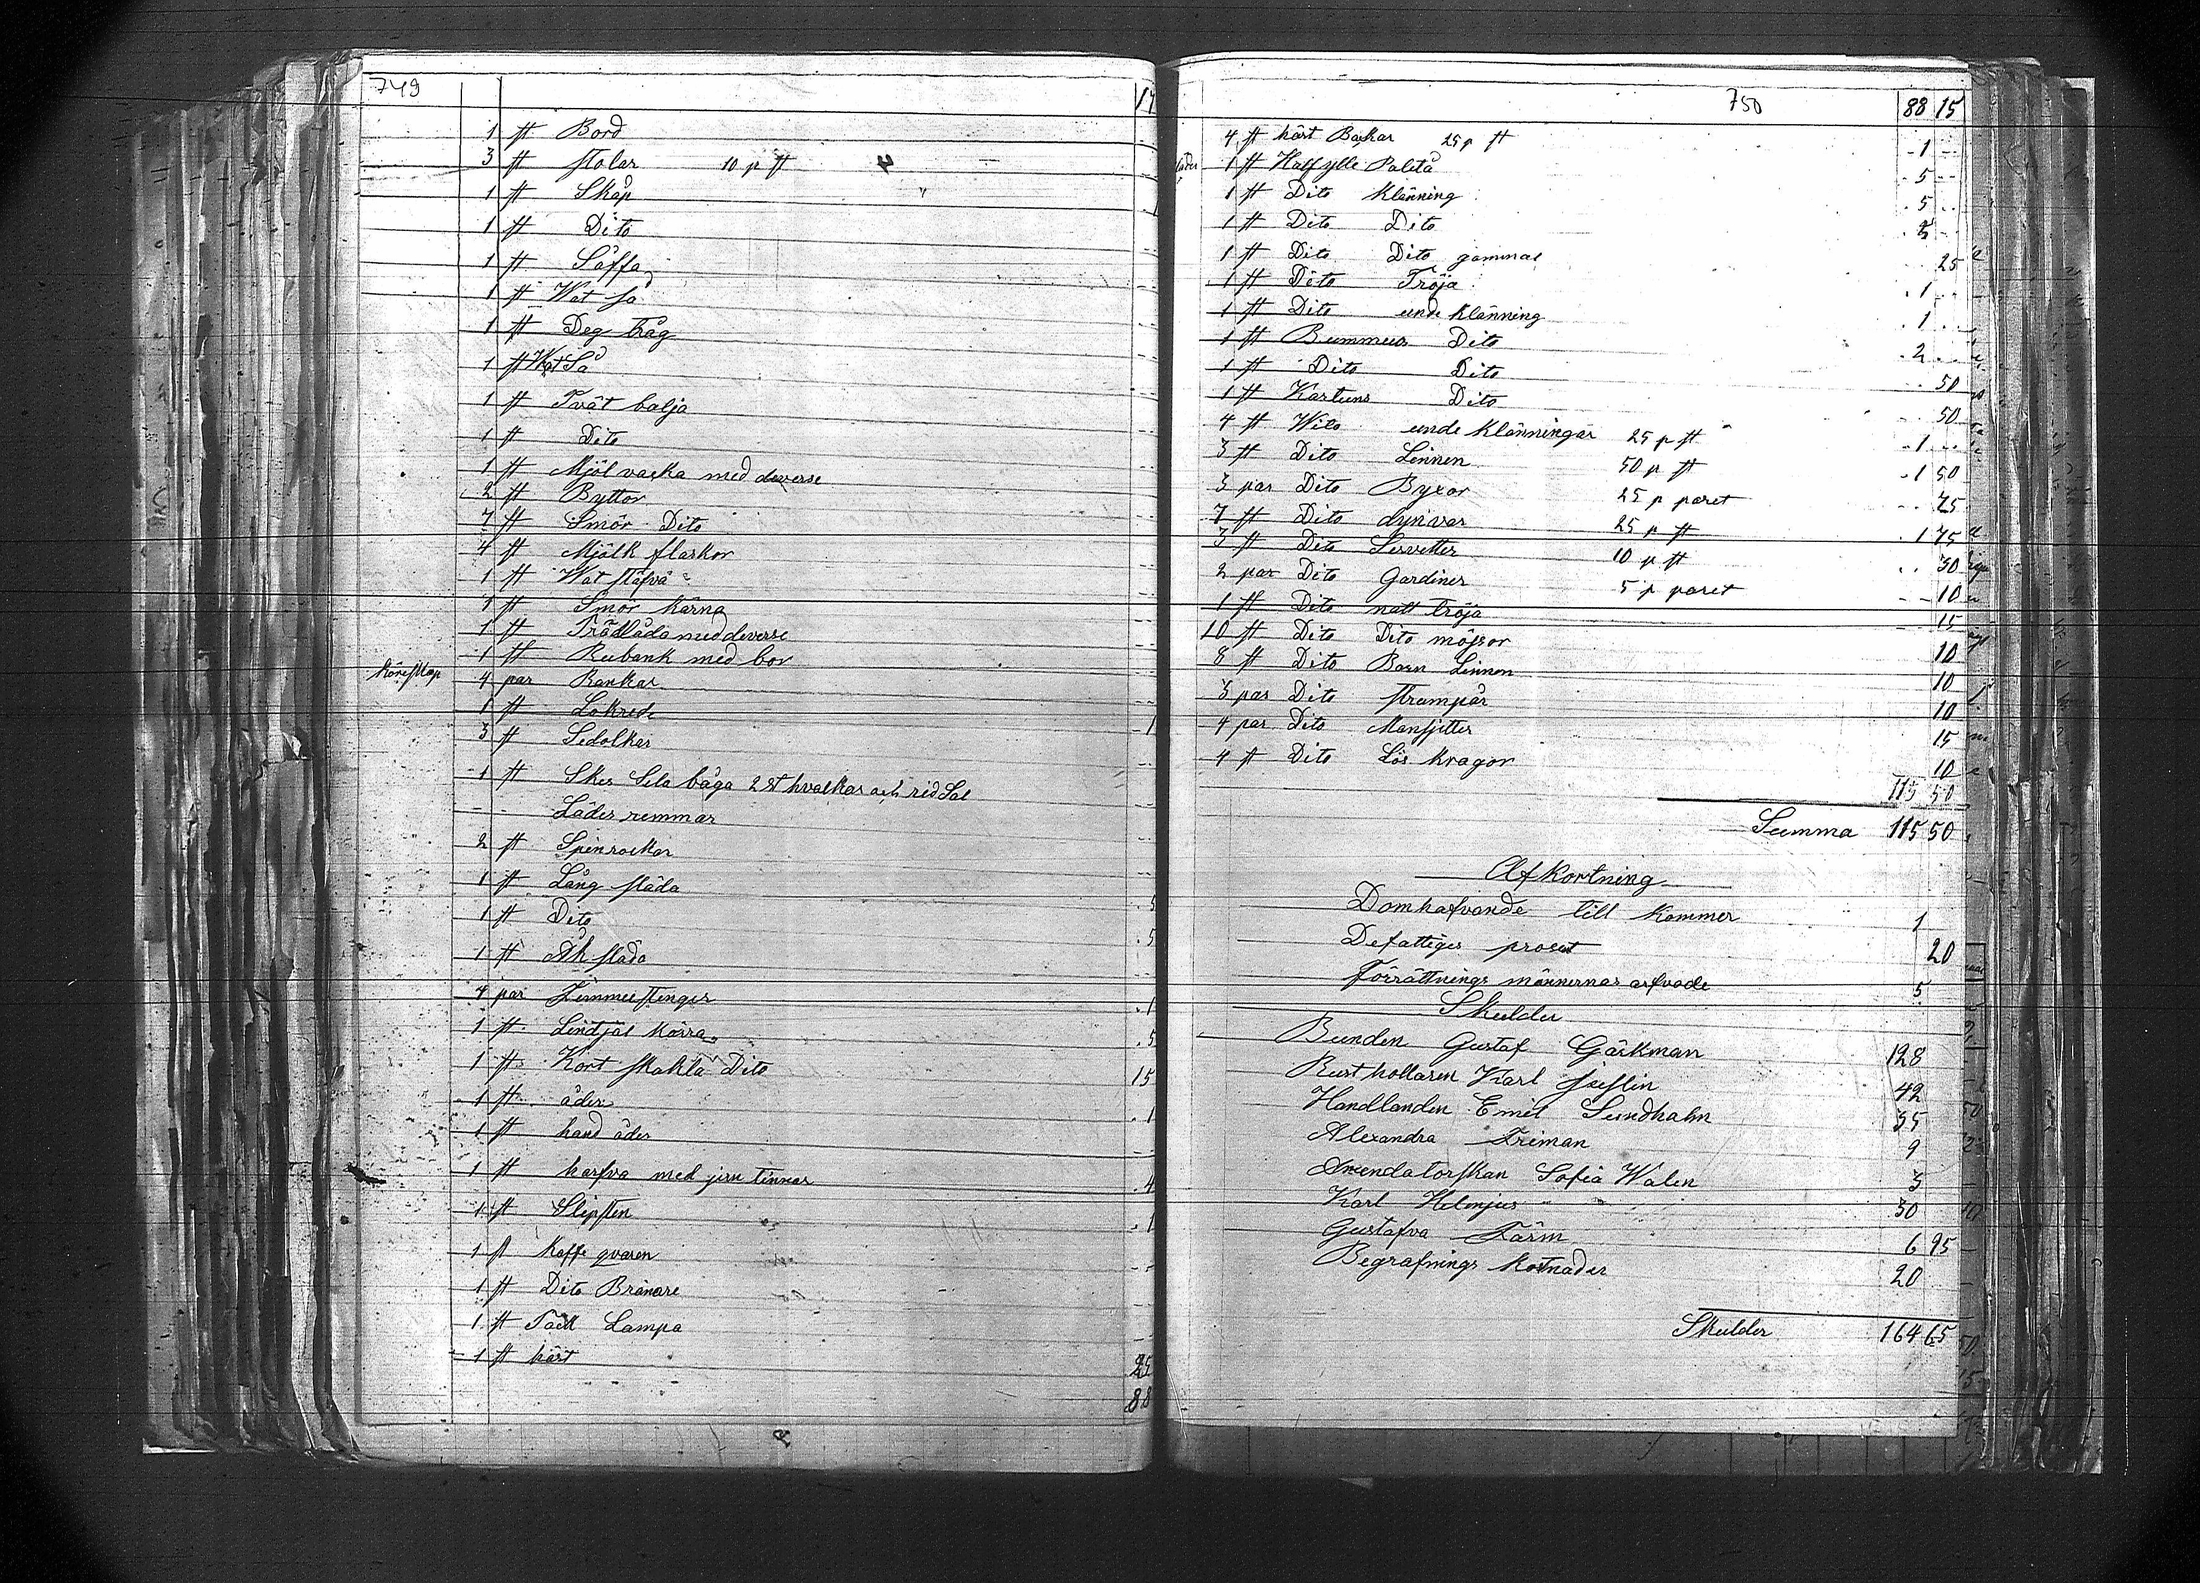 749
17
1 st Bord
3 st stolar 10 p st
1 st Skåp "
1 st Dito
1 st Såffa
1 st Wat så
1 st Deg tråg
1 st Wat Så
1 st Tvät balja
1 st Dito
1 st Mjöl vacka med deverse
2 st Byttor
7 st Smör Dito
4 st Mjölk flaskor
1 st Wat stäfva
1 st Smör kärna
1 st Trä låda med deverse
1 st Rubank med bor
köreskap 4 par Rankar
1 st Lokrede
3 st Sedolkar 1
1 st Sker Sela båga 2 st hvalkar och rid Sal
Läder remmar
2 st Spinrockar
1 st Lång släda 5
1 st Dito 5
1 st Åk släda
4 par Timmerstenger 1
1 st Lindjäl kärra 5
1 st Kort skakla Dito 15
1 st åder 1
1 st hand åder
1 st harfva med jern tinnar 4
1 st Slipsten 1
1 st Kaffe qvaren
1 st Dito Bränare
1 st Tack Lampa
1 st kärt 25
88
750 88 15
4 st kärt Backar 25 p st 1
1 st Half ylle Paletå 5
1 st Dito Klänning 5
1 st Dito Dito 5
1 st Dito Dito gammal 25
1 st Dito Tröja 1
1 st Dito unde klänning 1
1 st Bummuls Dito 2
1 st Dito Dito 50
1 st Kartuns Dito 50
4 st Wita unde klänningar 25 p st 1
3 st Dito Linnen 50 p st 1 50
3 par Dito Byxor 25 p paret 75
7 st Dito dynvar 25 p st 1 75
3 st Dito Servetter 10 p st 30
2 par Dito Gardiner 5 p paret 10
1 st Dito natt tröja 15
10 st Dito Dito mössor 10
8 st Dito Barn Linnen 10
3 par Dito strumpår 10
4 par Dito Mansjetter 15
4 st Dito Lös kragor 10
115 50
Summa 115 50
Afkortning
Domhafvande till kommer 1
Defattiges prosent 20
Förrättnings männernas arfvode 5
Skulder
Bunden Gustaf Gärkman 128
Rusthollaren Karl 42
Handlanden Emil Sundhalm 35
Alexandra Friman 9
Arendatorskan Sofia Walen 3
Karl Helenjus 30
Gustafva Färm 6 95
Begrafnings kostnader 20
Skulder 164 65